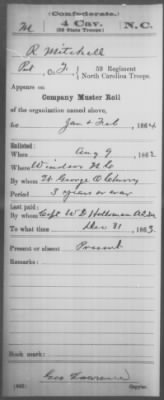 (Confederate.)
M 4 Cav. N.C.
(59 State Troops)
R Mitchell
Pvt, Co. F, 59 Regiment
North Carolina Troops.
Appears on
Company Muster Roll
of the organization named above,
for Jan & Feb 1864.
Enlisted:
When Aug 9, 1862.
Where Windsor N.C.
By whom Lt George
Period 3 years or war
Last paid:
By whom Capt W D Holloman
To what time Dec 31, 1863.
Present or absent Present
Remarks:
Book mark:
Geo Lawrence
(642) Copyist.